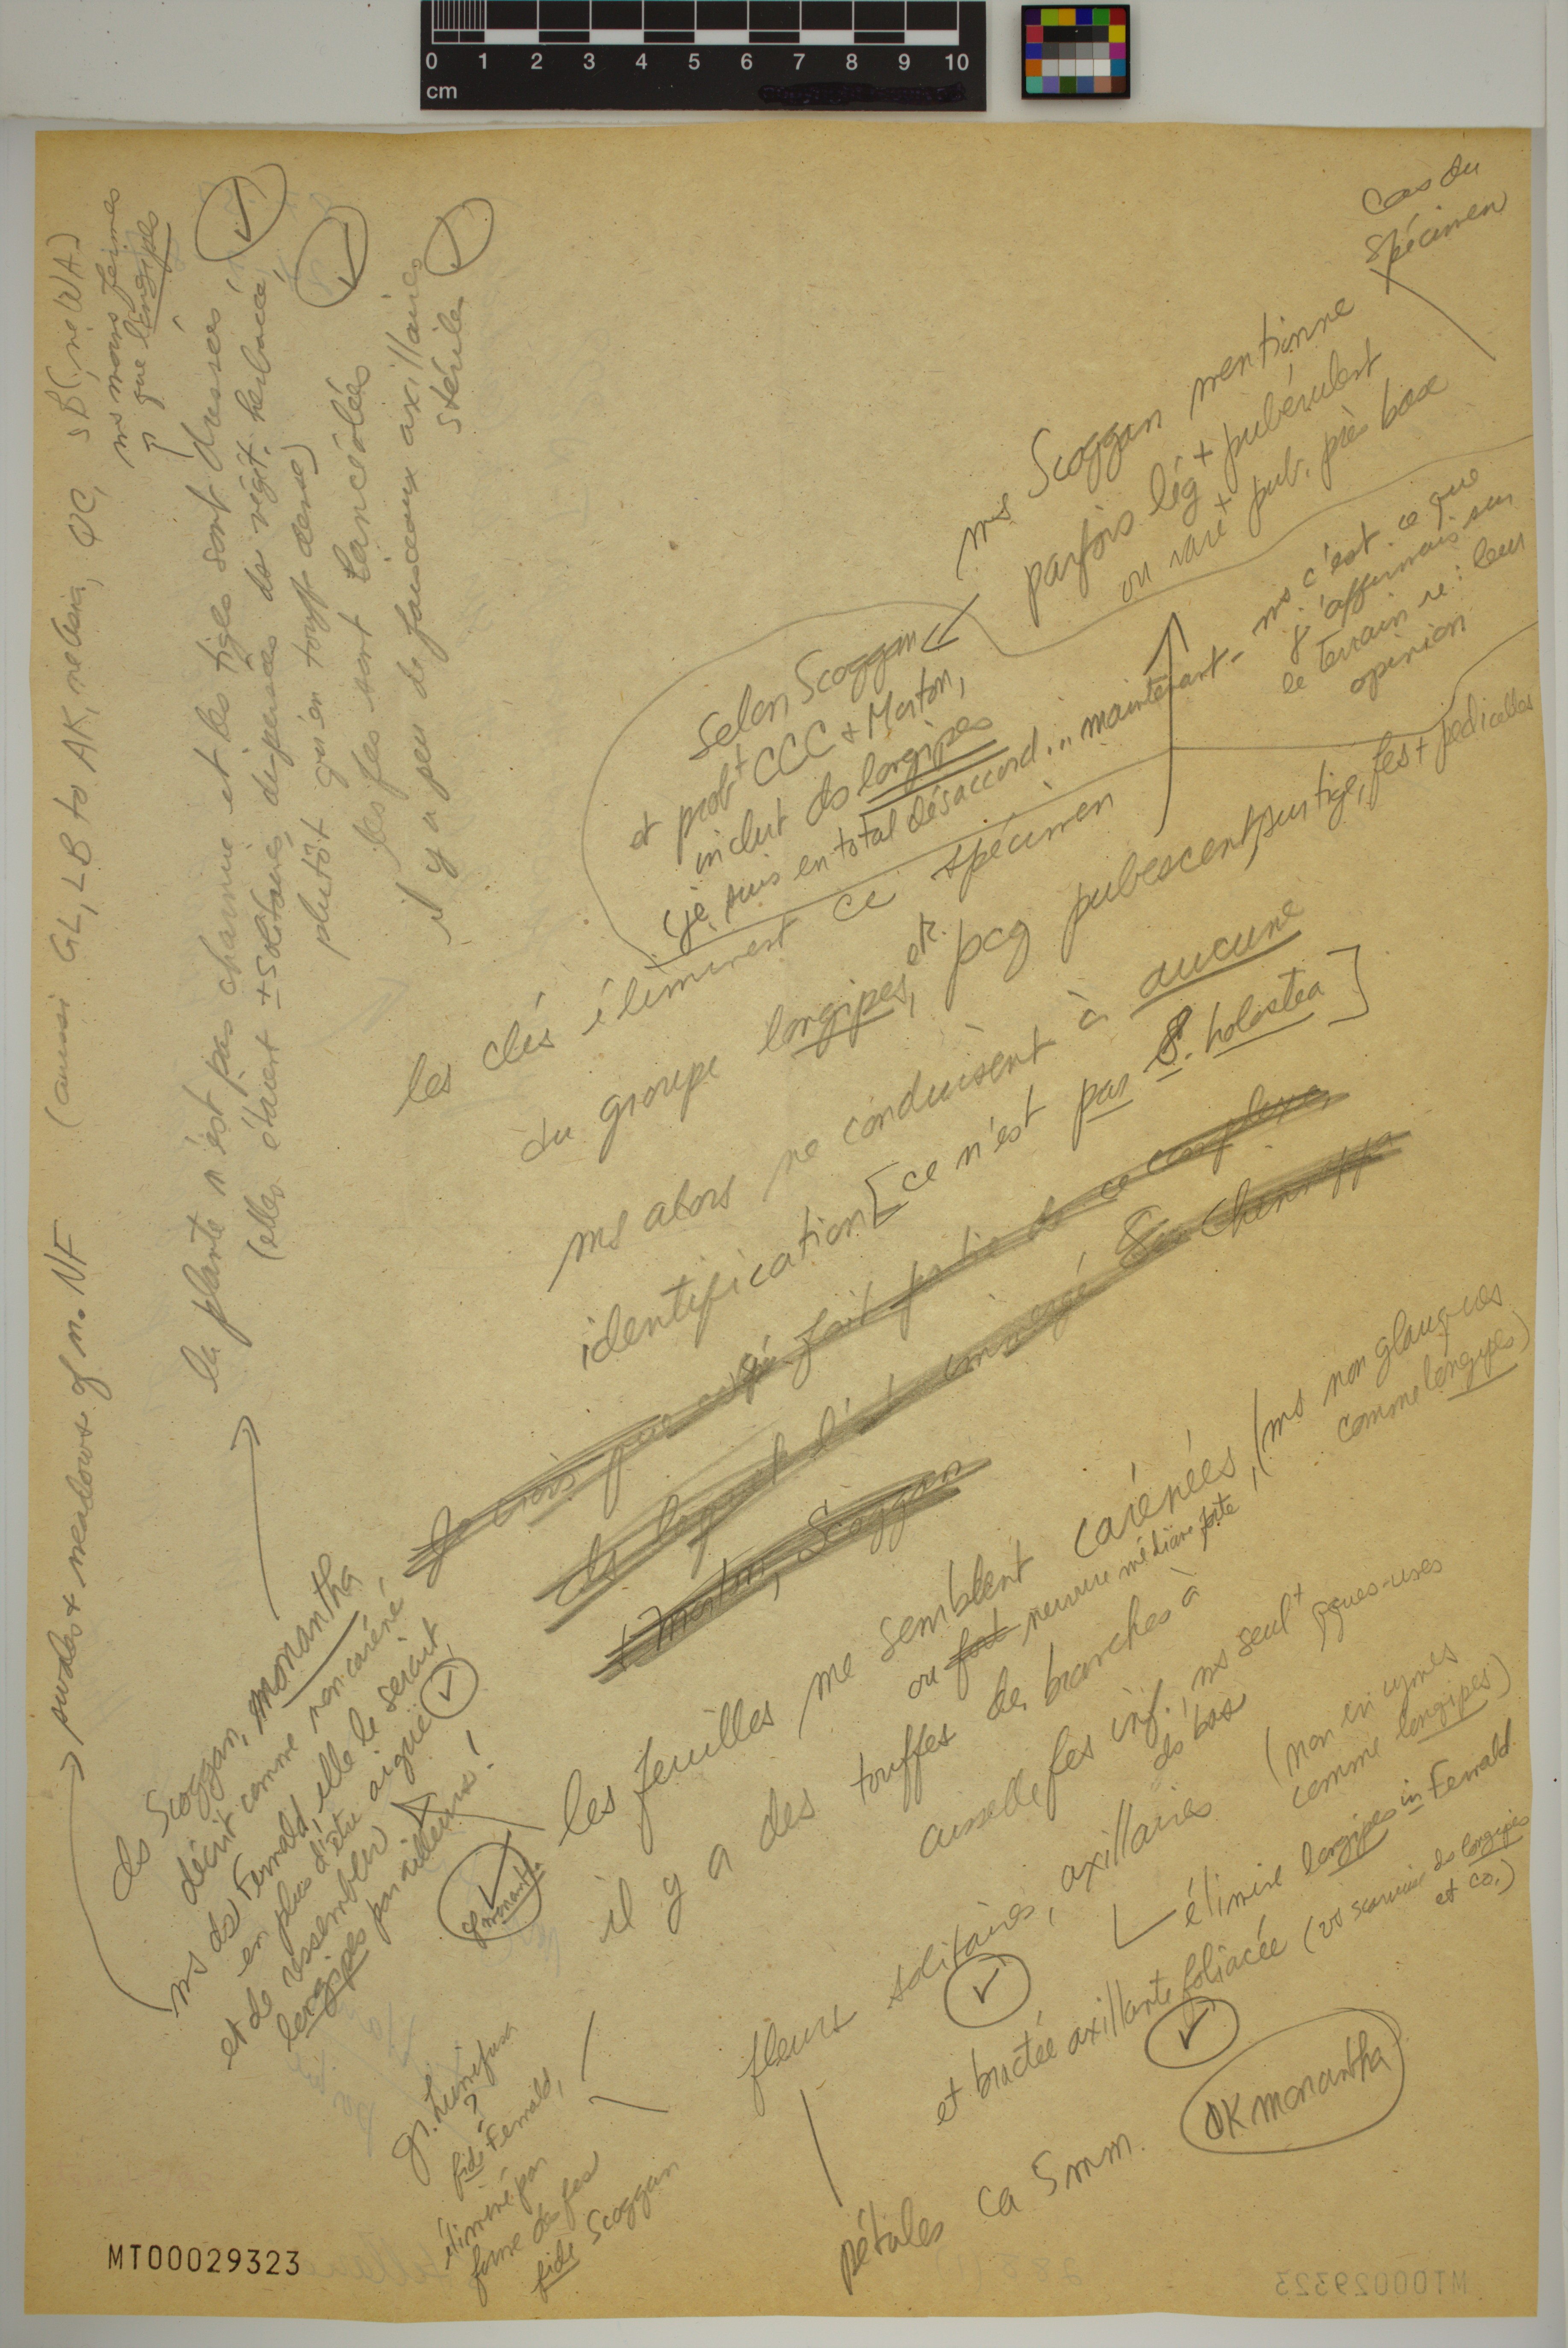 0 1 2 3 4 5 6 7 8 9 10
cm
Cas du
spécimen
ms Scoggan mentionne
parfois lég+ pubérulent
ou rare+ pub. près base
Selon Scoggan
et prob+ CCC + Morton,
inclut ds longipes
(je suis en total désaccord .. maintenant - ms c'est ce que
j'affirmais sur
le terrain re: leur
opinion
les clés éliminent ce spécimen
du groupe longipes, etc. pcq pubescent, sur tige, fes + pedicelles
ms alors ne conduisent à aucune
identification [ce n'est pas S. holostea]
Je crois que fait partie de ce complexe
ds lequel immergé
+ Morton, Scoggan
les feuilles me semblent carénées, (ms non glauques
comme longipes)
ou fort nervure médiane forte
il y a des touffes de branches à
aisselle fes inf., ms seul+ ques-unes
ds bas
fleurs solitaires, axillaires (non en cymes
comme longipes)
élimine longipes in Fernald
et bractée axillante foliacée (vs scarieuse ds longipes
et co.)
pétales ca 5mm.
OK monantha
(aussi GL, LB to AK, ne Asia, QC, sBC, ne WA)
ms moins fermes
que longipes
→ swales + meadows of n. NF
la plante n'est pas charnue et les tiges sont dressées
(elles étaient ± solitaires, dispersées ds végét. herbacée
plutôt qu'en touffe dense)
les fes sont lancéolées
il y a peu de faisceaux axillaires
stériles
ds Scoggan, monantha
décrit comme non caréné
ms ds Fernald, elle le serait,
en plus d'être aigüe
et de ressembler
longipes par ailleurs!
monantha
gr.
?
fide Fernald,
éliminé par
forme des fes
fide Scoggan
MT00029323